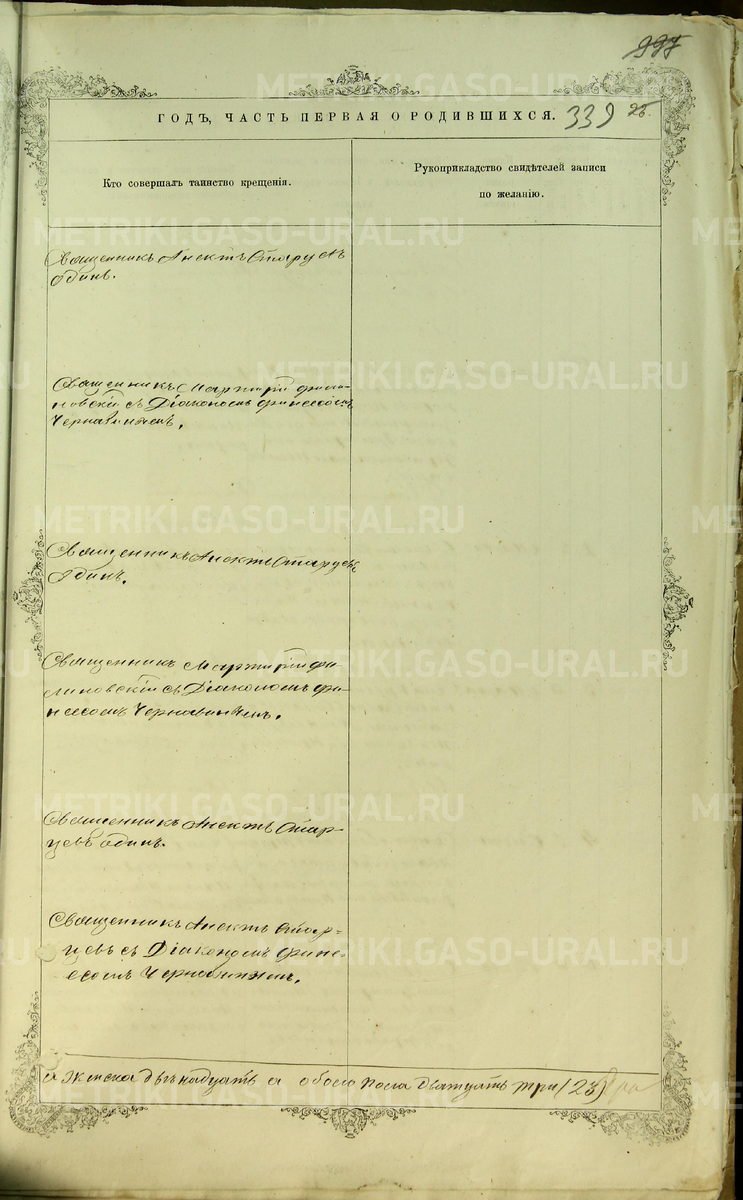 997
ГОДЪ, ЧАСТЬ ПЕРВАЯ О РОДИВШИХСЯ. 339 25.
Кто совершалъ таинство крещенія.
Рукоприкладство свидѣтелей записи
по желанію.
Священникъ Анектъ Старцевъ
одинъ.
Священникъ Мартирій Фили-
новскій съ Діакономъ Финеесомъ
Чернавинымъ.
Священникъ Анектъ Старцевъ
одинъ.
Священникъ Мартирій Фи-
линовскій съ Діакономъ Фи-
неесомъ Чернавинымъ.
Священникъ Анектъ Стар-
цевъ одинъ.
Священникъ Анектъ Стар-
цевъ съ Діакономъ Фине-
есомъ Чернавинымъ.
а женска двѣнадцать а обоего пола двадцать три (23)
METRIKI.GASO-URAL.RU